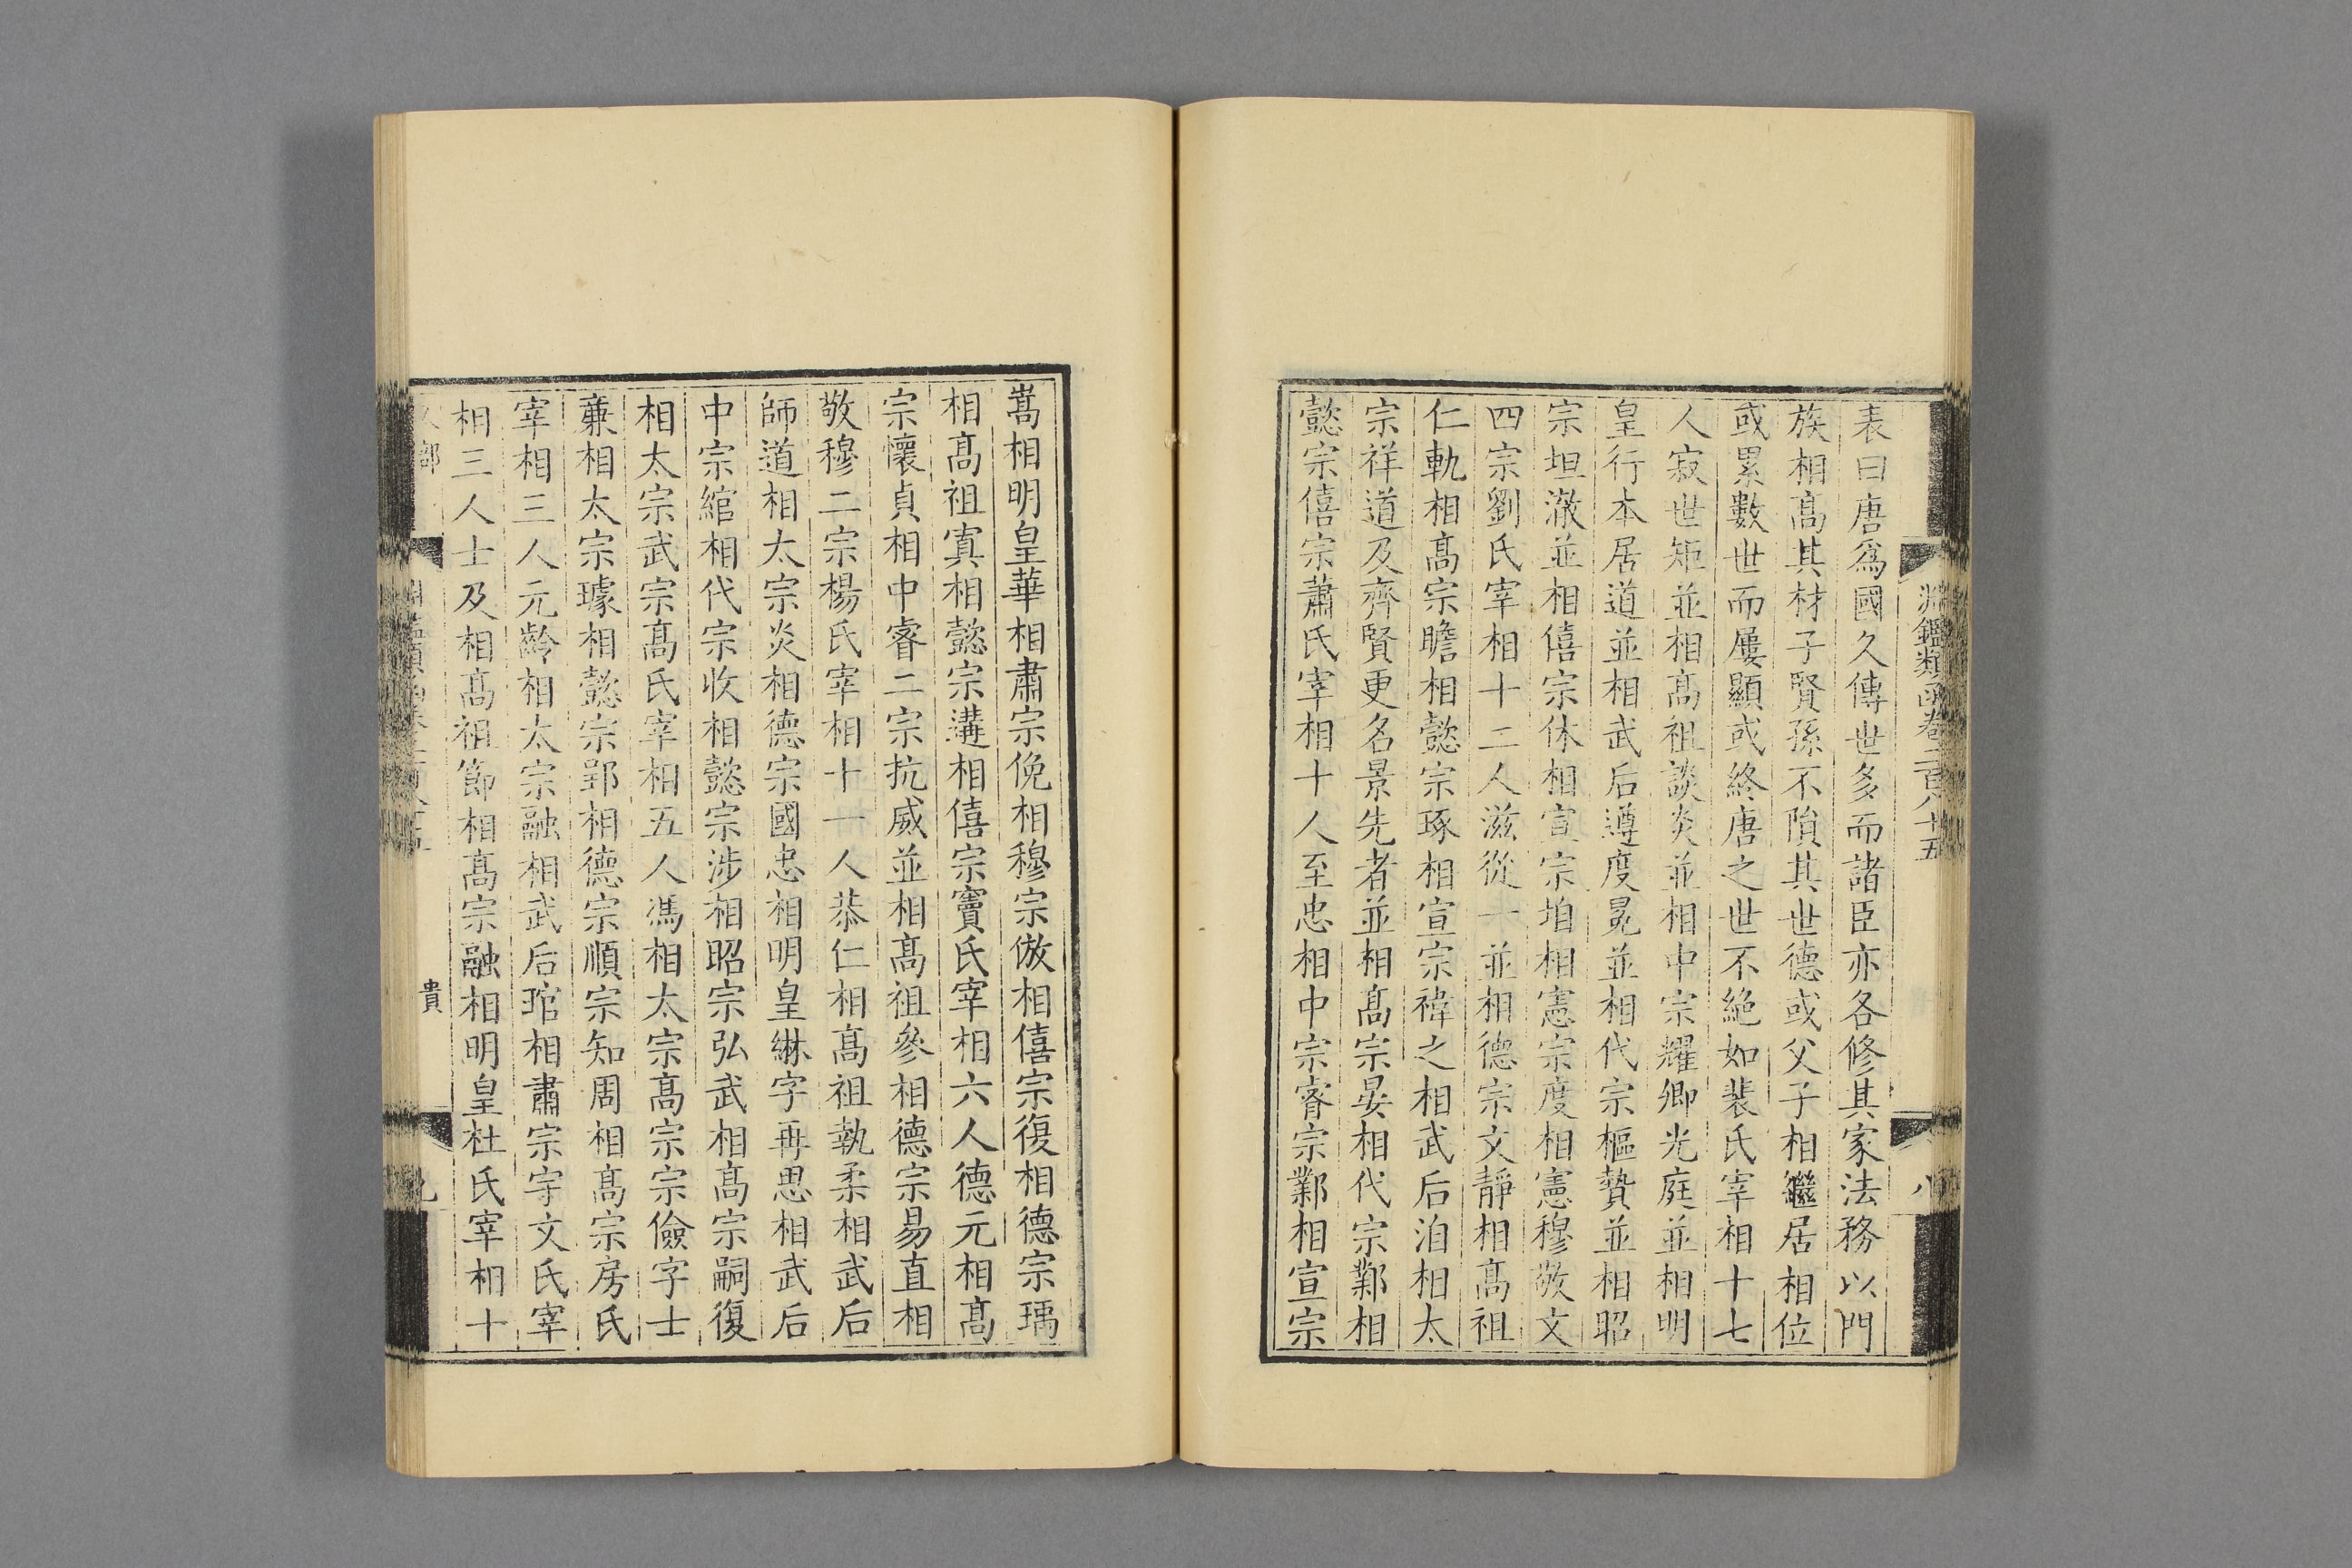 淵鑑類函卷二百八十五
八
表曰唐爲國久傳世多而諸臣亦各修其家法務以門
族相髙其材子賢孫不隕其世德或父子相繼居相位
或累數世而屢顯或終唐之世不絶如裴氏宰相十七
人寂世矩並相髙祖談炎並相中宗耀卿光庭並相明
皇行本居道並相武后遵度冕並相代宗樞贄並相昭
宗坦澈並相僖宗休相宣宗垍相憲宗度相憲穆敬文
四宗劉氏宰相十二人滋從一並相德宗文靜相髙祖
仁軌相髙宗瞻相懿宗琢相宣宗禕之相武后洎相太
宗祥道及齊賢更名景先者並相髙宗晏相代宗鄴相
懿宗僖宗蕭氏宰相十人至忠相中宗睿宗鄴相宣宗
嵩相明皇華相肅宗俛相穆宗倣相僖宗復相德宗瑀
相髙祖寘相懿宗遘相僖宗竇氏宰相六人德元相髙
宗懷貞相中睿二宗抗威並相髙祖參相德宗易直相
敬穆二宗楊氏宰相十一人恭仁相髙祖執柔相武后
師道相太宗炎相德宗國忠相明皇綝字再思相武后
中宗綰相代宗收相懿宗涉相昭宗弘武相髙宗嗣復
相太宗武宗髙氏宰相五人馮相太宗髙宗宗儉字士
亷相太宗璩相懿宗郢相德宗順宗知周相髙宗房氏
宰相三人元齡相太宗融相武后琯相肅宗宇文氏宰
相三人士及相髙祖節相髙宗融相明皇杜氏宰相十
部
貴
九